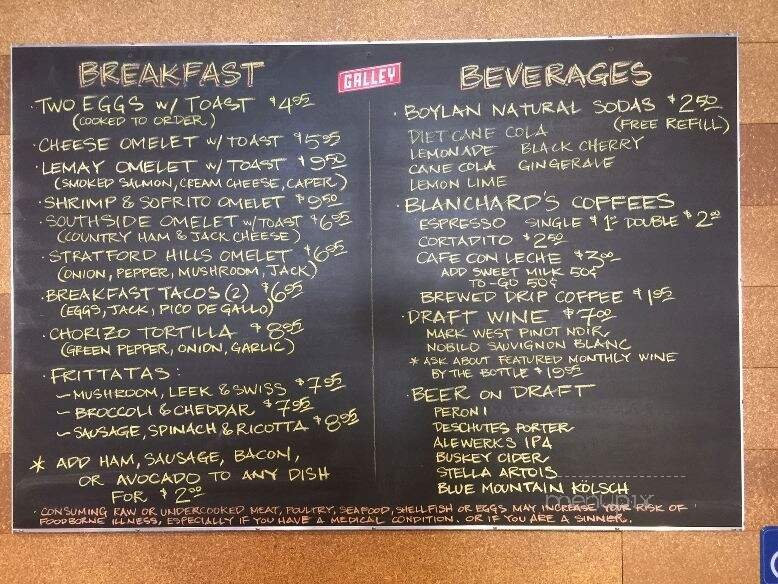 BREAKFAST
TWO EGGS W/ TOAST $4.95
(COOKED TO ORDER)
· CHEESE OMELET W/ TOAST $5.95
· LEMAY OMELET W/ TOAST $9.50
(SMOKED SALMON, CREAM CHEESE, CAPER)
· SHRIMP & SOFRITO OMELET $9.50
· SOUTHSIDE OMELET W/ TOAST $6.95
(COUNTRY HAM & JACK CHEESE)
· STRATFORD HILLS OMELET $6.95
(ONION, PEPPER, MUSHROOM, JACK)
· BREAKFAST TACOS (2) $6.95
(EGGS, JACK, PICO DE GALLO)
· CHORIZO TORTILLA $8.95
(GREEN PEPPER, ONION, GARLIC)
· FRITTATAS:
~ MUSHROOM, LEEK & SWISS $7.95
~ BROCCOLI & CHEDDAR $7.95
~ SAUSAGE, SPINACH & RICOTTA $8.95
* ADD HAM, SAUSAGE, BACON,
OR AVOCADO TO ANY DISH
FOR $2.00
GALLEY
BEVERAGES
· BOYLAN NATURAL SODAS $2.50
(FREE REFILL)
DIET CANE COLA
LEMONADE BLACK CHERRY
CANE COLA GINGERALE
LEMON LIME
· BLANCHARD'S COFFEES
ESPRESSO SINGLE $1.75 DOUBLE $2.00
CORTADITO $2.50
CAFE CON LECHE $3.00
ADD SWEET MILK 50¢
TO-GO 50¢
BREWED DRIP COFFEE $1.95
· DRAFT WINE $7.00
MARK WEST PINOT NOIR
NOBILO SAUVIGNON BLANC
* ASK ABOUT FEATURED MONTHLY WINE
BY THE BOTTLE $19.95
· BEER ON DRAFT
PERONI
DESCHUTES PORTER
ALEWERKS IPA
BUSKEY CIDER
STELLA ARTOIS
BLUE MOUNTAIN KÖLSCH
menupix
· CONSUMING RAW OR UNDERCOOKED MEAT, POULTRY, SEAFOOD, SHELLFISH OR EGGS MAY INCREASE YOUR RISK OF
FOODBORNE ILLNESS, ESPECIALLY IF YOU HAVE A MEDICAL CONDITION. OR IF YOU ARE A SINNER.